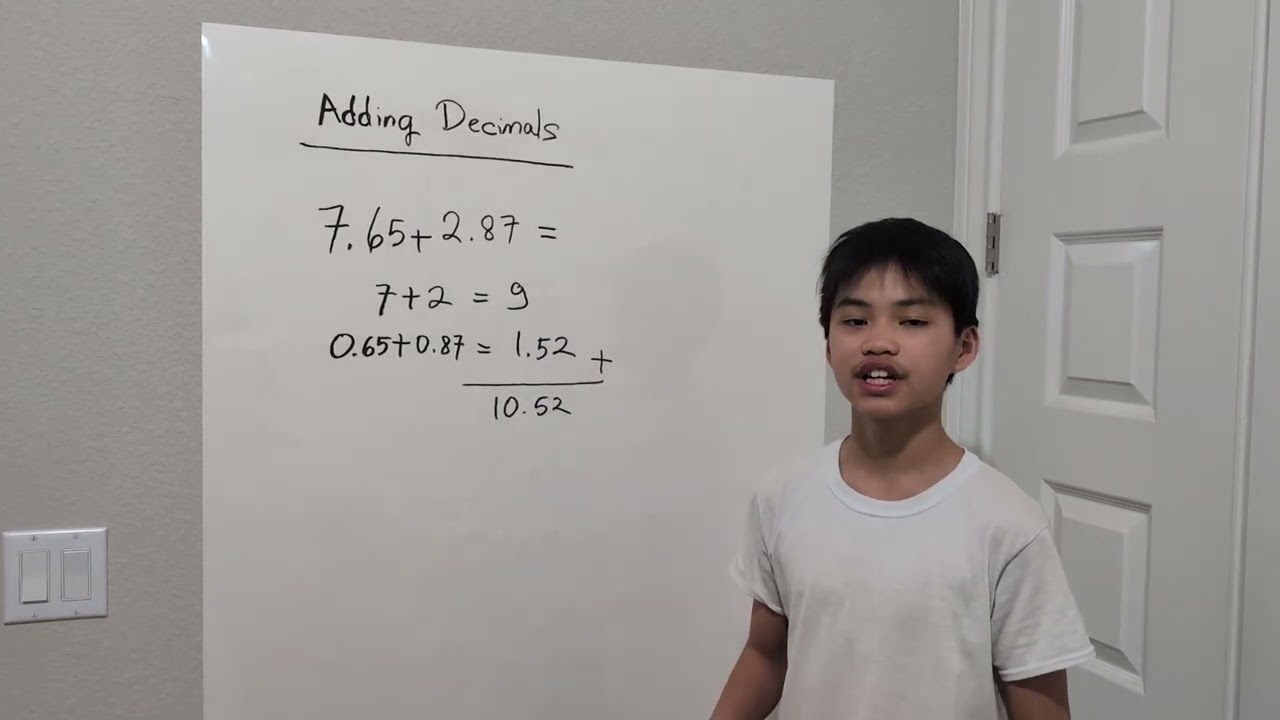 Adding Decimals
7.65+2.87 =
7+2 = 9
0.65+0.87 = 1.52 +
10.52